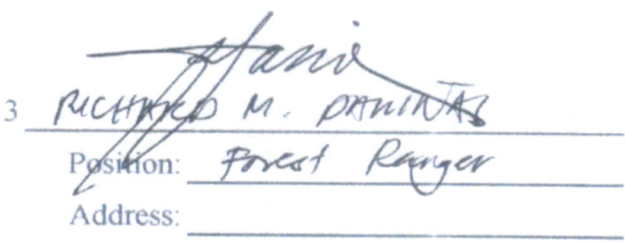 3 RICHARD M.
Position: Forest Ranger
Address: